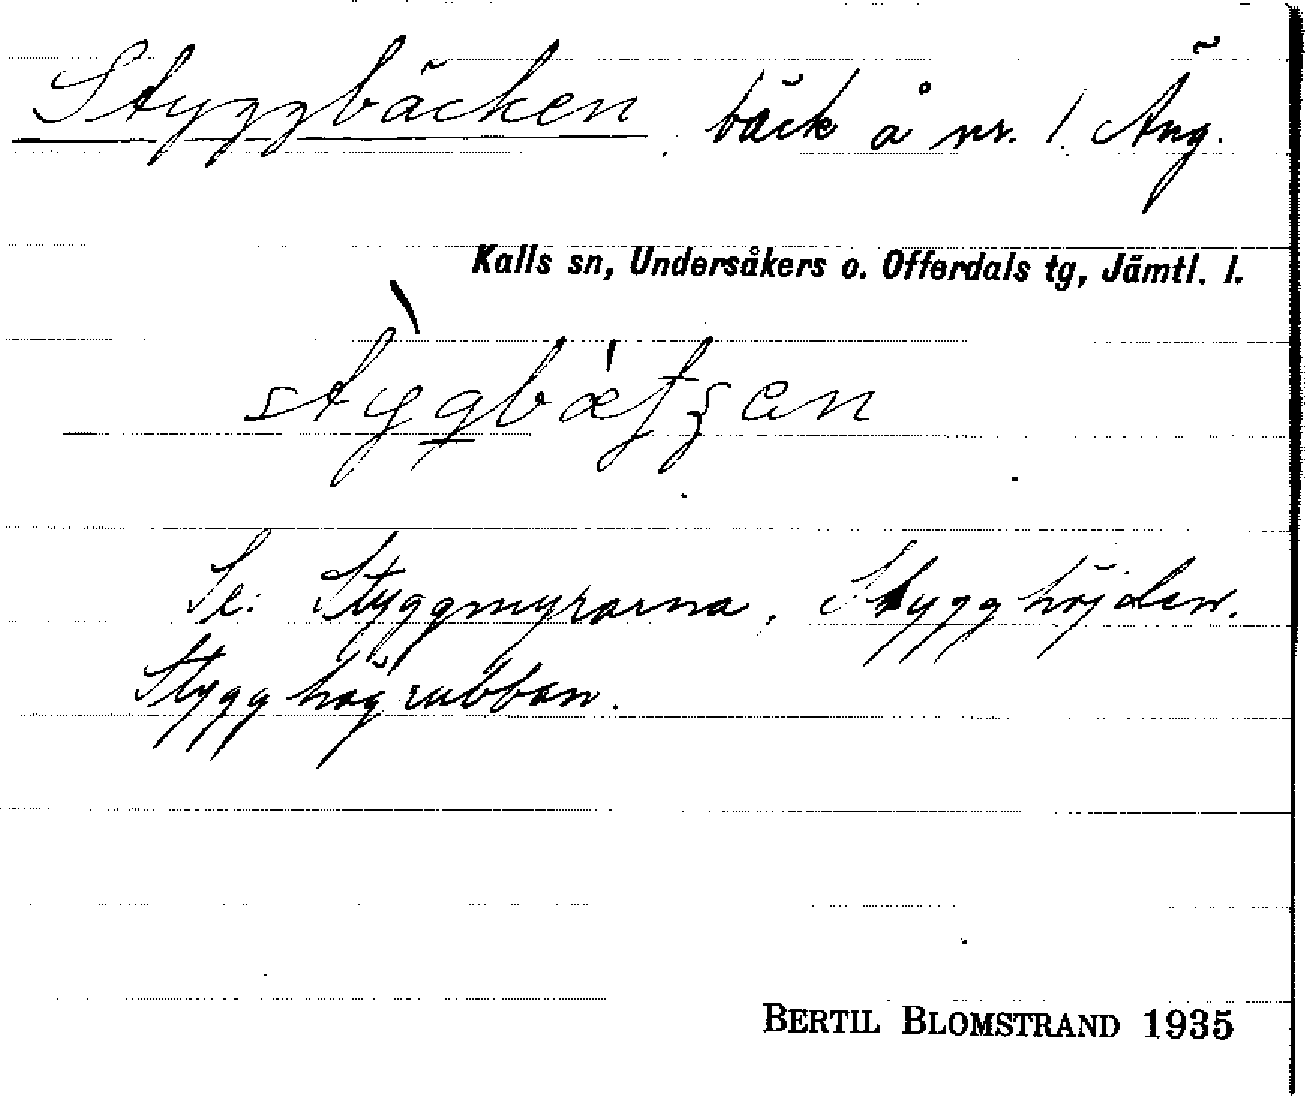 Styggbäcken, bäck å nr. 1 Äng.
Kalls sn, Undersåkers o. Offerdals tg, Jämtl. l.
Se: Styggmyrarna, Stygghöjden.
Stygghögrubban.
BERTIL BLOMSTRAND 1935